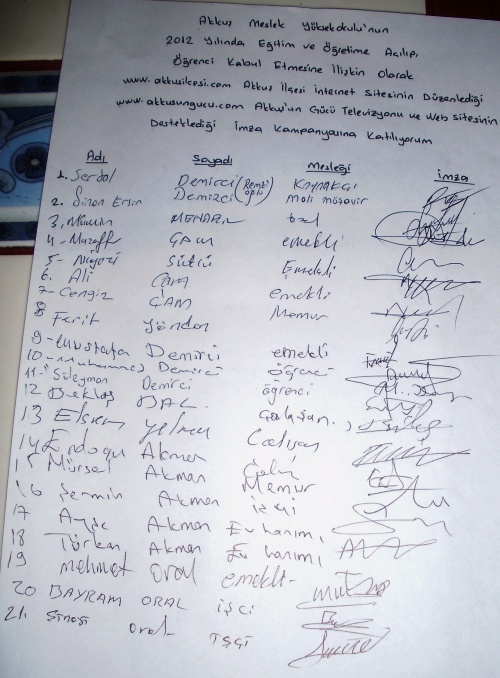 Akkuş Meslek Yüksekokulu'nun
2012 Yılında Eğitim ve Öğretime Açılıp,
Öğrenci Kabul Etmesine İlişkin Olarak
www.akkusilcesi.com Akkuş İlçesi İnternet Sitesinin Düzenlediği
www.akkusungucu.com Akkuş'un Gücü Televizyonu ve Web Sitesinin
Desteklediği İmza Kampanyasına Katılıyorum
Adı Soyadı Mesleği İmza
1. Serdal Demirci
2. Sinan Ersin Demirci Mali müşavir
3,
4- Muzaff emekli
5- Niyazi Sütcü Emekli
6. Ali Çam
7- Cengiz ÇAM emekli
8 Ferit Memur
9- Mustafa Demirci emekli
10- Muhammed Demirci öğrenci
11- Süleyman Demirci öğrenci
12 Bektaş DAL.
13
14 Erdoğan Akman
15 Mürsel Akman Memur
16 Şermin Akman işçi
17 Ayşe Akman Ev hanımı
18 Türkan Akman Ev hanımı
19 mehmet oral emekli-
20 BAYRAM ORAL işçi
21. Sinasi oral işçi